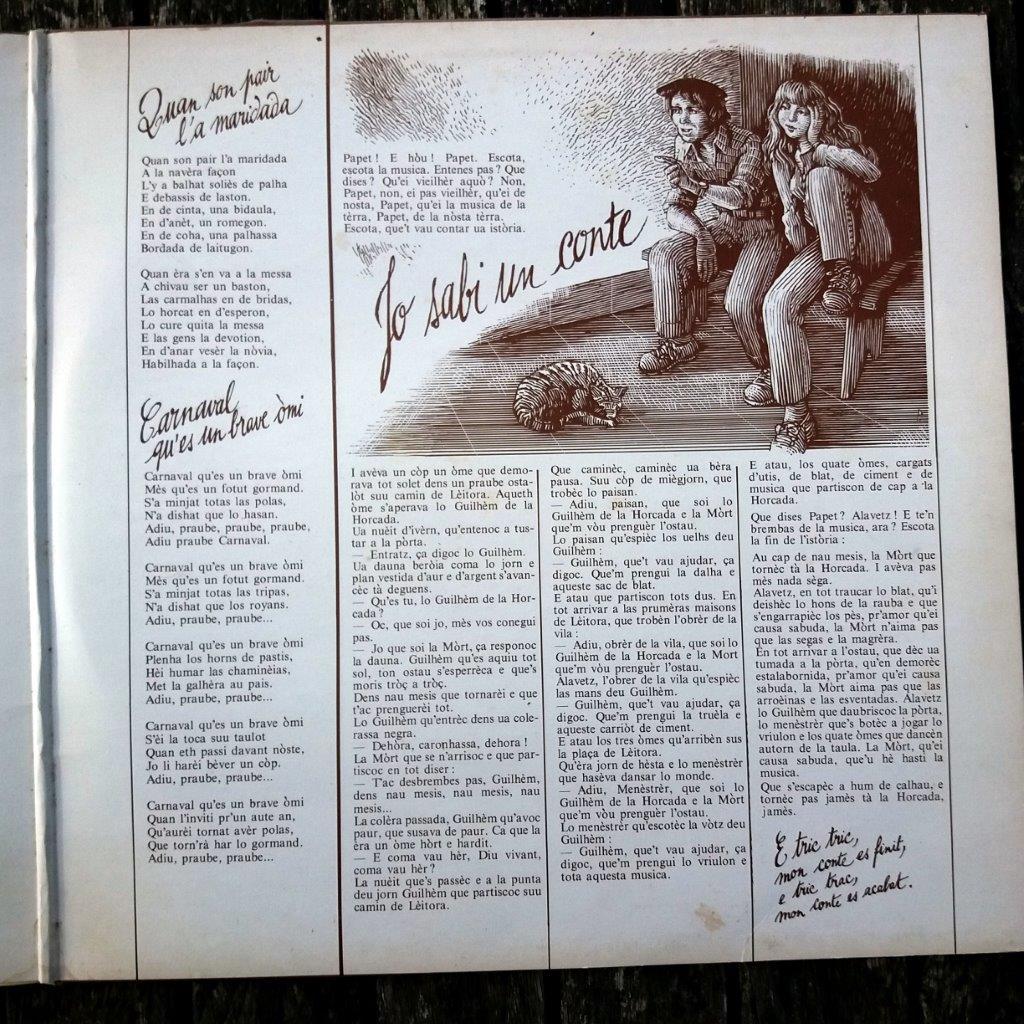 Quan son pair
l'a maridada
Quan son pair l'a maridada
A la navèra façon
L'y a balhat soliès de palha
E debassis de laston.
En de cinta, una bidaula,
En d'anèt, un romegon.
En de coha, una palhassa
Bordada de laitugon.
Quan èra s'en va a la messa
A chivau ser un baston,
Las carmalhas en de bridas,
Lo horcat en d'esperon,
Lo cure quita la messa
E las gens la devotion,
En d'anar vesèr la nòvia,
Habilhada a la façon.
Carnaval
qu'es un brave òmi
Carnaval qu'es un brave òmi
Mès qu'es un fotut gormand.
S'a minjat totas las polas,
N'a dishat que lo hasan.
Adiu, praube, praube, praube,
Adiu praube Carnaval.
Carnaval qu'es un brave òmi
Mès qu'es un fotut gormand.
S'a minjat totas las tripas,
N'a dishat que los royans.
Adiu, praube, praube...
Carnaval qu'es un brave òmi
Plenha los horns de pastis,
Hèi humar las chaminèias,
Met la galhèra au pais.
Adiu, praube, praube...
Carnaval qu'es un brave òmi
S'èi la toca suu taulot
Quan eth passi davant nòste,
Jo li harèi bèver un còp.
Adiu, praube, praube...
Carnaval qu'es un brave òmi
Quan l'inviti pr'un aute an,
Qu'aurèi tornat avèr polas,
Que torn'rà har lo gormand.
Adiu, praube, praube...
Papet ! E hòu ! Papet. Escota,
escota la musica. Entenes pas ? Que
dises ? Qu'ei vieilhèr aquò ? Non,
Papet, non, ei pas vieilhèr, qu'ei de
nosta, Papet, qu'ei la musica de la
tèrra, Papet, de la nòsta tèrra.
Escota, que't vau contar ua istòria.
Jo sabi un conte
I avèva un còp un òme que demo-
rava tot solet dens un praube osta-
lòt suu camin de Lèitora. Aqueth
òme s'aperava lo Guilhèm de la
Horcada.
Ua nuèit d'ivèrn, qu'entenoc a tus-
tar a la pòrta.
— Entratz, ça digoc lo Guilhèm.
Ua dauna beròia coma lo jorn e
plan vestida d'aur e d'argent s'avan-
cèc tà deguens.
— Qu'es tu, lo Guilhèm de la Hor-
cada ?
— Oc, que soi jo, mès vos conegui
pas.
— Jo que soi la Mòrt, ça responoc
la dauna. Guilhèm qu'es aquiu tot
sol, ton ostau s'esperrèca e que's
moris tròç a tròç.
Dens nau mesis que tornarèi e que
t'ac prenguerèi tot.
Lo Guilhèm qu'entrèc dens ua cole-
rassa negra.
— Dehòra, caronhassa, dehora !
La Mòrt que se n'arrisoc e que par-
tiscoc en tot diser :
— T'ac desbrembes pas, Guilhèm,
dens nau mesis, nau mesis, nau
mesis...
La colèra passada, Guilhèm qu'avoc
paur, que susava de paur. Ca que la
èra un òme hòrt e hardit.
— E coma vau hèr, Diu vivant,
coma vau hèr ?
La nuèit que's passèc e a la punta
deu jorn Guilhèm que partiscoc suu
camin de Lèitora.
Que caminèc, caminèc ua bèra
pausa. Suu còp de miègjorn, que
trobèc lo paisan.
— Adiu, paisan, que soi lo
Guilhèm de la Horcada e la Mòrt
que'm vòu prenguèr l'ostau.
Lo paisan qu'espièc los uelhs deu
Guilhèm :
— Guilhèm, que't vau ajudar, ça
digoc. Que'm prengui la dalha e
aqueste sac de blat.
E atau que partiscon tots dus. En
tot arrivar a las prumèras maisons
de Lèitora, que trobèn l'obrèr de la
vila :
— Adiu, obrèr de la vila, que soi lo
Guilhèm de la Horcada e la Mort
que'm vòu prenguèr l'ostau.
Alavetz, l'obrer de la vila qu'espièc
las mans deu Guilhèm.
— Guilhem, que't vau ajudar, ça
digoc. Que'm prengui la truèla e
aqueste carriòt de ciment.
E atau los tres òmes qu'arribèn sus
la plaça de Lèitora.
Qu'èra jorn de hèsta e lo menèstrèr
que hasèva dansar lo monde.
— Adiu, Menèstrèr, que soi lo
Guilhèm de la Horcada e la Mòrt
que'm vòu prenguèr l'ostau.
Lo menèstrèr qu'escotèc la vòtz deu
Guilhèm :
— Guilhèm, que't vau ajudar, ça
digoc, que'm prengui lo vriulon e
tota aquesta musica.
E atau, los quate òmes, cargats
d'utis, de blat, de ciment e de
musica que partiscon de cap a la
Horcada.
Que dises Papet ? Alavetz ! E te'n
brembas de la musica, ara ? Escota
la fin de l'istòria :
Au cap de nau mesis, la Mòrt que
tornèc tà la Horcada. I avèva pas
mès nada sèga.
Alavetz, en tot traucar lo blat, qu'i
deishèc lo hons de la rauba e que
s'engarrapièc los pès, pr'amor qu'ei
causa sabuda, la Mòrt n'aima pas
que las segas e la magrèra.
En tot arrivar a l'ostau, que dèc ua
tumada a la pòrta, qu'en demorèc
estalabornida, pr'amor qu'ei causa
sabuda, la Mòrt aima pas que las
arroèinas e las esventadas. Alavetz
lo Guilhèm que daubriscoc la pòrta,
lo menèstrèr que's botèc a jogar lo
vriulon e los quate òmes que dancèn
autorn de la taula. La Mòrt, qu'ei
causa sabuda, que'u hè hasti la
musica.
Que s'escapèc a hum de calhau, e
tornèc pas jamès tà la Horcada,
jamès.
E tric tric,
mon conte es finit,
e tric trac,
mon conte es acabat.